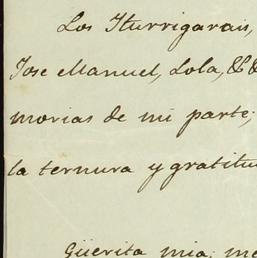 Los Iturrigarais,
Jose Manuel, Lola, &&
morias de mi parte;
la ternura y gratitu
Güerita mia: me